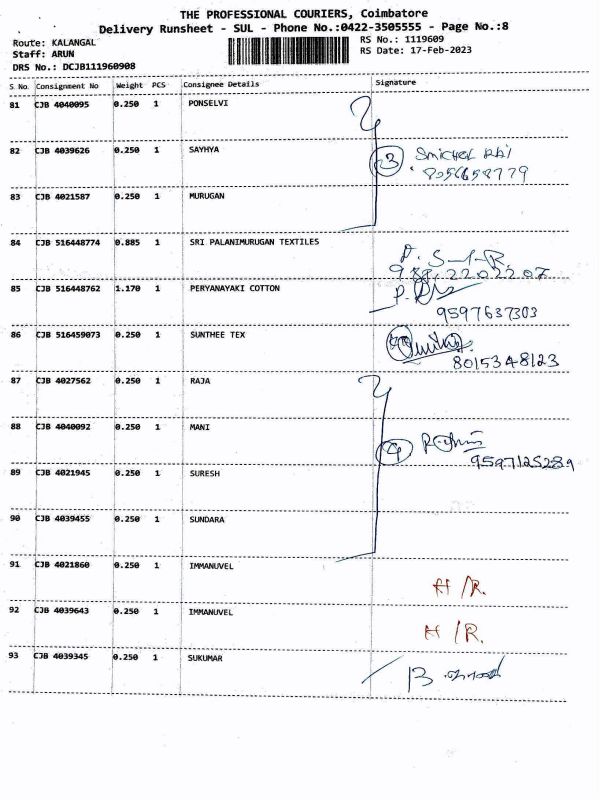 THE PROFESSIONAL COURIERS, Coimbatore
Delivery Runsheet - SUL - Phone No.:0422-3505555 - Page No.:8
Route: KALANGAL
Staff: ARUN
DRS No.: DCJB111960908
RS No.: 1119609
RS Date: 17-Feb-2023
S No. Consignment No Weight PCS Consignee Details Signature
81 CJB 4040095 0.250 1 PONSELVI
82 CJB 4039626 0.250 1 SAYHYA
3
8056658779
83 CJB 4021587 0.250 1 MURUGAN
84 CJB 516448774 0.885 1 SRI PALANIMURUGAN TEXTILES
85 CJB 516448762 1.170 1 PERYANAYAKI COTTON
9597637303
86 CJB 516459073 0.250 1 SUNTHEE TEX
8015348123
87 CJB 4027562 0.250 1 RAJA
88 CJB 4040092 0.250 1 MANI
4
9597125289
89 CJB 4021945 0.250 1 SURESH
90 CJB 4039455 0.250 1 SUNDARA
91 CJB 4021860 0.250 1 IMMANUVEL
H/R.
92 CJB 4039643 0.250 1 IMMANUVEL
H/R.
93 CJB 4039345 0.250 1 SUKUMAR